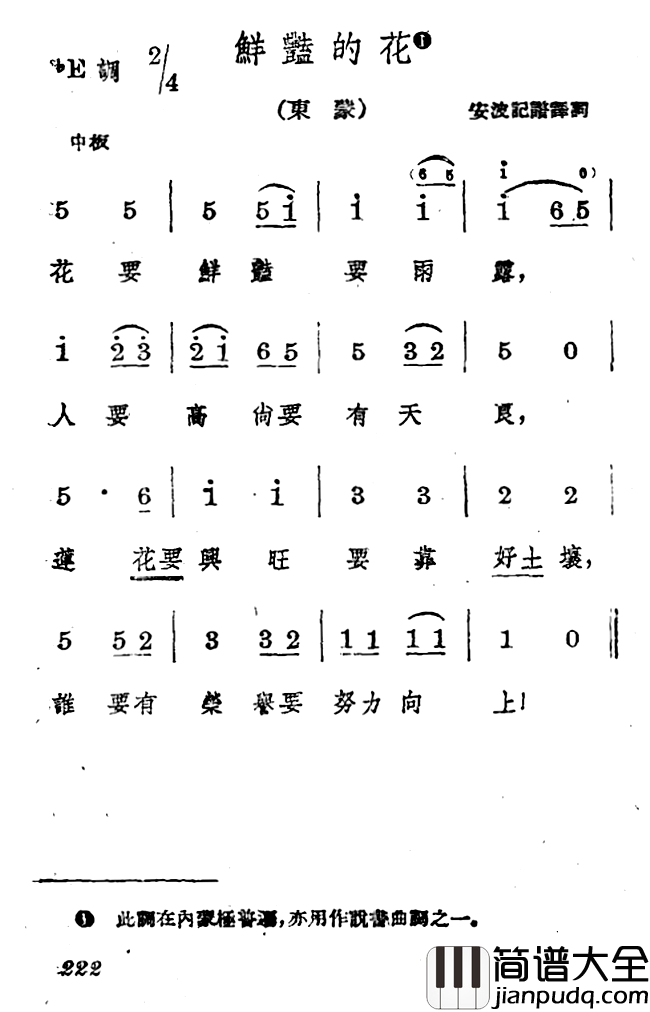 鮮豔的花❶
♭E調 2/4
（東蒙）
安波記譜譯詞
中板
(6 5 i 0)
5 5 | 5 5 i | i i | i 6 5 |
花要鮮豔要雨露，
i 2 3 | 2 i 6 5 | 5 3 2 | 5 0 |
人要高尙要有天良，
5 · 6 | i i | 3 3 | 2 2 |
蓮花要興旺要靠好土壤，
5 5 2 | 3 3 2 | 1 1 1 1 | 1 0 ‖
誰要有榮譽要努力向上！
❶ 此調在內蒙極普遍，亦用作說書曲調之一。
222
简谱大全
jianpudq.com